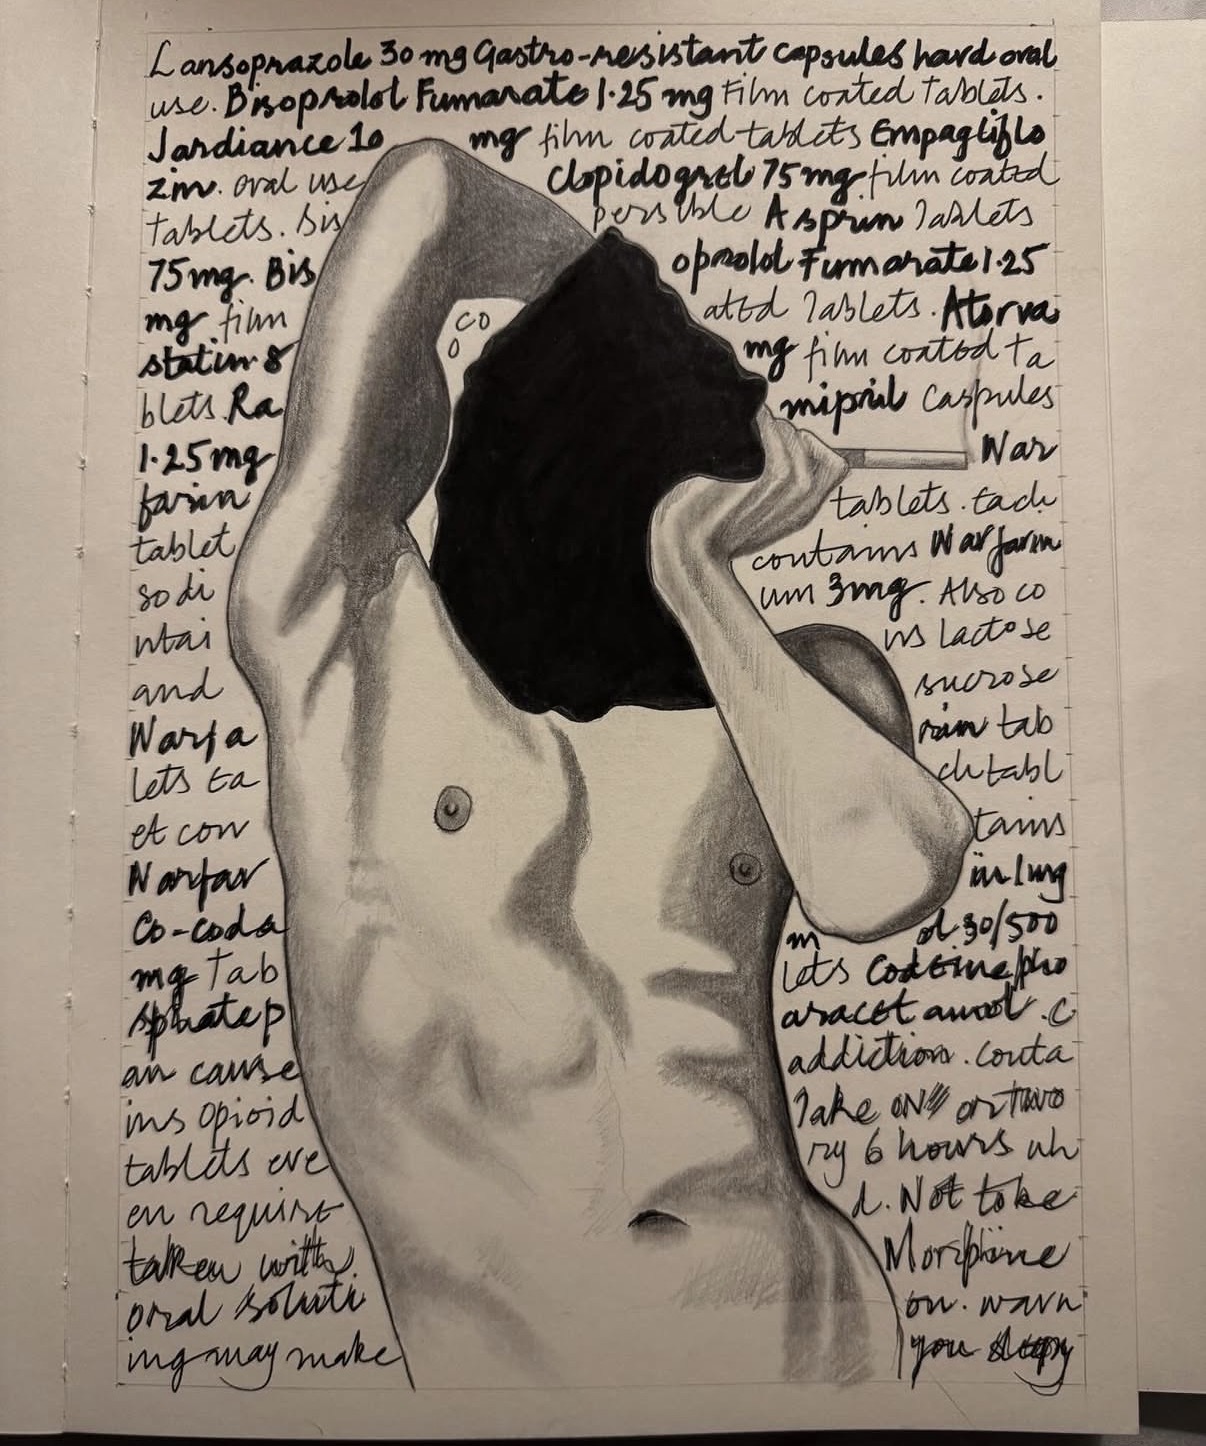 Lansoprazole 30 mg Gastro-resistant capsules hard oral
use. Bisoprolol Fumarate 1.25 mg Film coated Tablets.
Jardiance 10 mg film coated tablets Empagliflo
zin. oral use Clopidogrel 75mg film coated
tablets. Dis persible Asprin Tablets
75mg. Bis oprolol Fumarate 1.25
mg film co ated Tablets. Atorva
statin 8 0 mg film coated ta
blets. Ra mipril Caspules
1.25mg War
farin tablets. Each
tablet contains Warfarin
sodi um 3mg. Also co
ntai ns lactose
and sucrose
Warfa rin tab
lets Ea ch tabl
et con tains
Warfar in 1mg
Co-coda m ol 30/500
mg Tab lets Codeine pho
sphate p aracetamol. C
an cause addiction. conta
ins opioid Take one or two
tablets eve ry 6 hours wh
en require d. Not to be
taken with Morphine
oral soluti on. warn
ing may make you sleepy